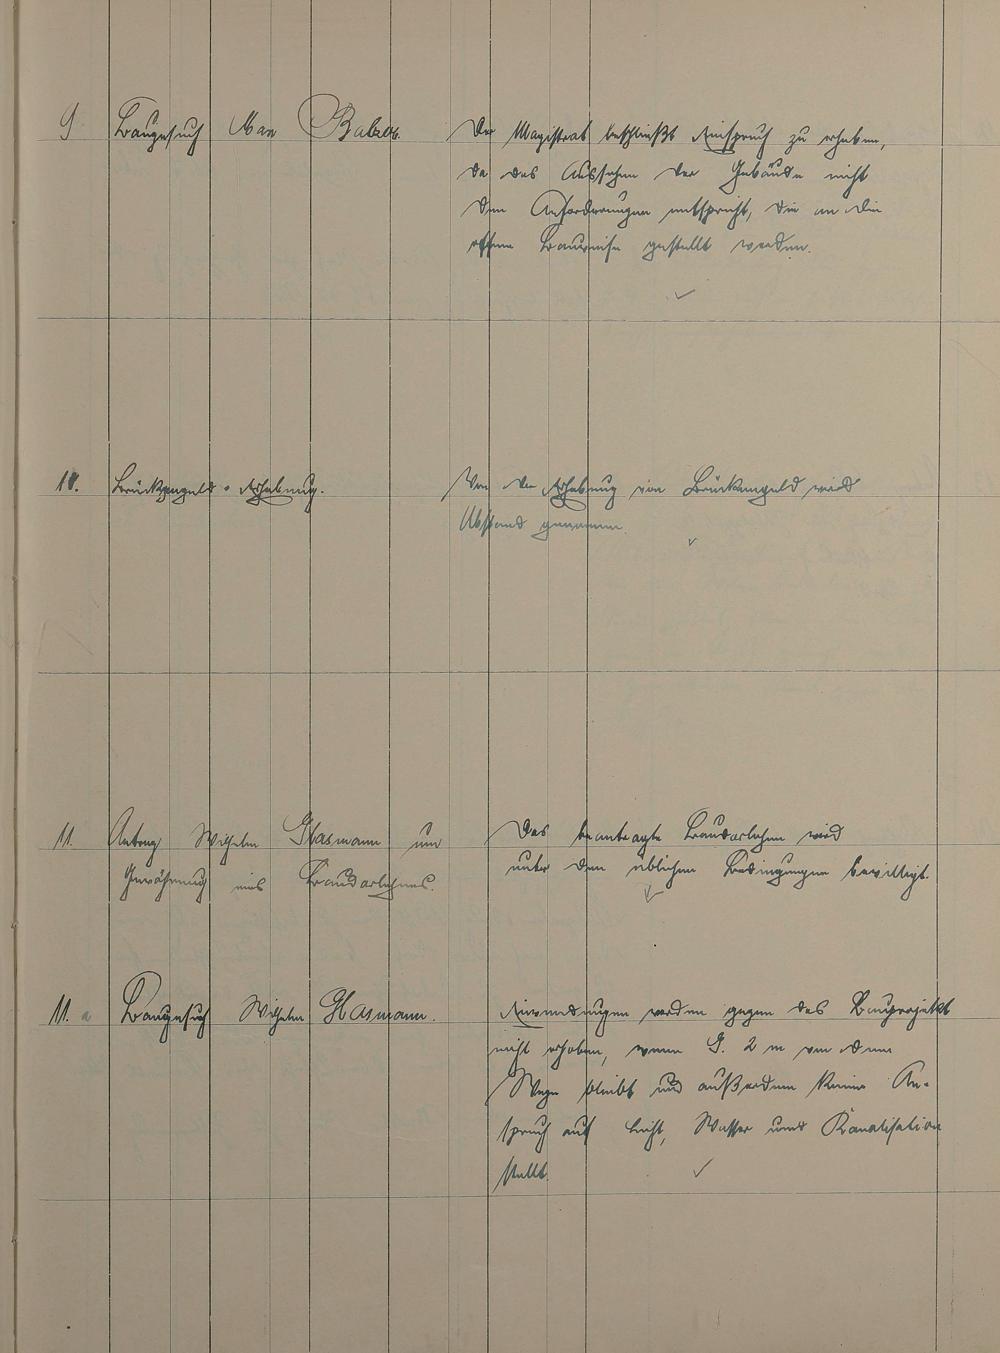 9 Baugesuch Max Balzer.
Der Magistrat beschließt Einspruch zu erheben,
da das Aussehen der Gebäude nicht
den Anforderungen entspricht, die an die
offene Bauweise gestellt werden.
10. Brückengeld-Erhebung.
Von der Erhebung von Brückengeld wird
Abstand genommen.
11. Antrag Wilhelm Glasmann um
Gewährung eines Baudarlehnes.
Das beantragte Baudarlehen wird
unter den üblichen Bedingungen bewilligt.
11. a Baugesuch Wilhelm Glasmann.
Einwendungen werden gegen das Bauprojekt
nicht erhoben, wenn G. 2 m von dem
Wege bleibt und außerdem keine An-
spruch auf Licht, Wasser und Kanalisation
stellt.